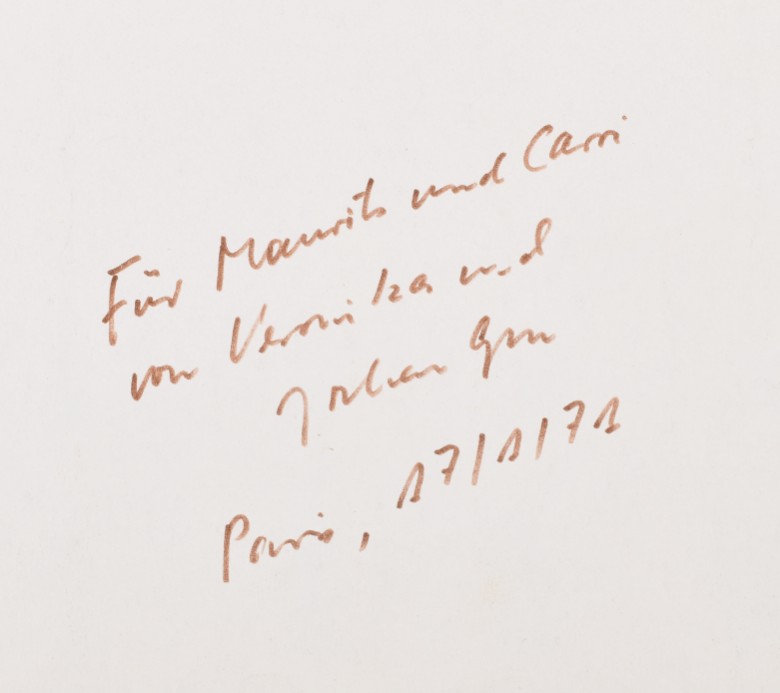 Für Maurits und Carri
von Veronika und
Jochen Gerz
Paris, 17/1/71